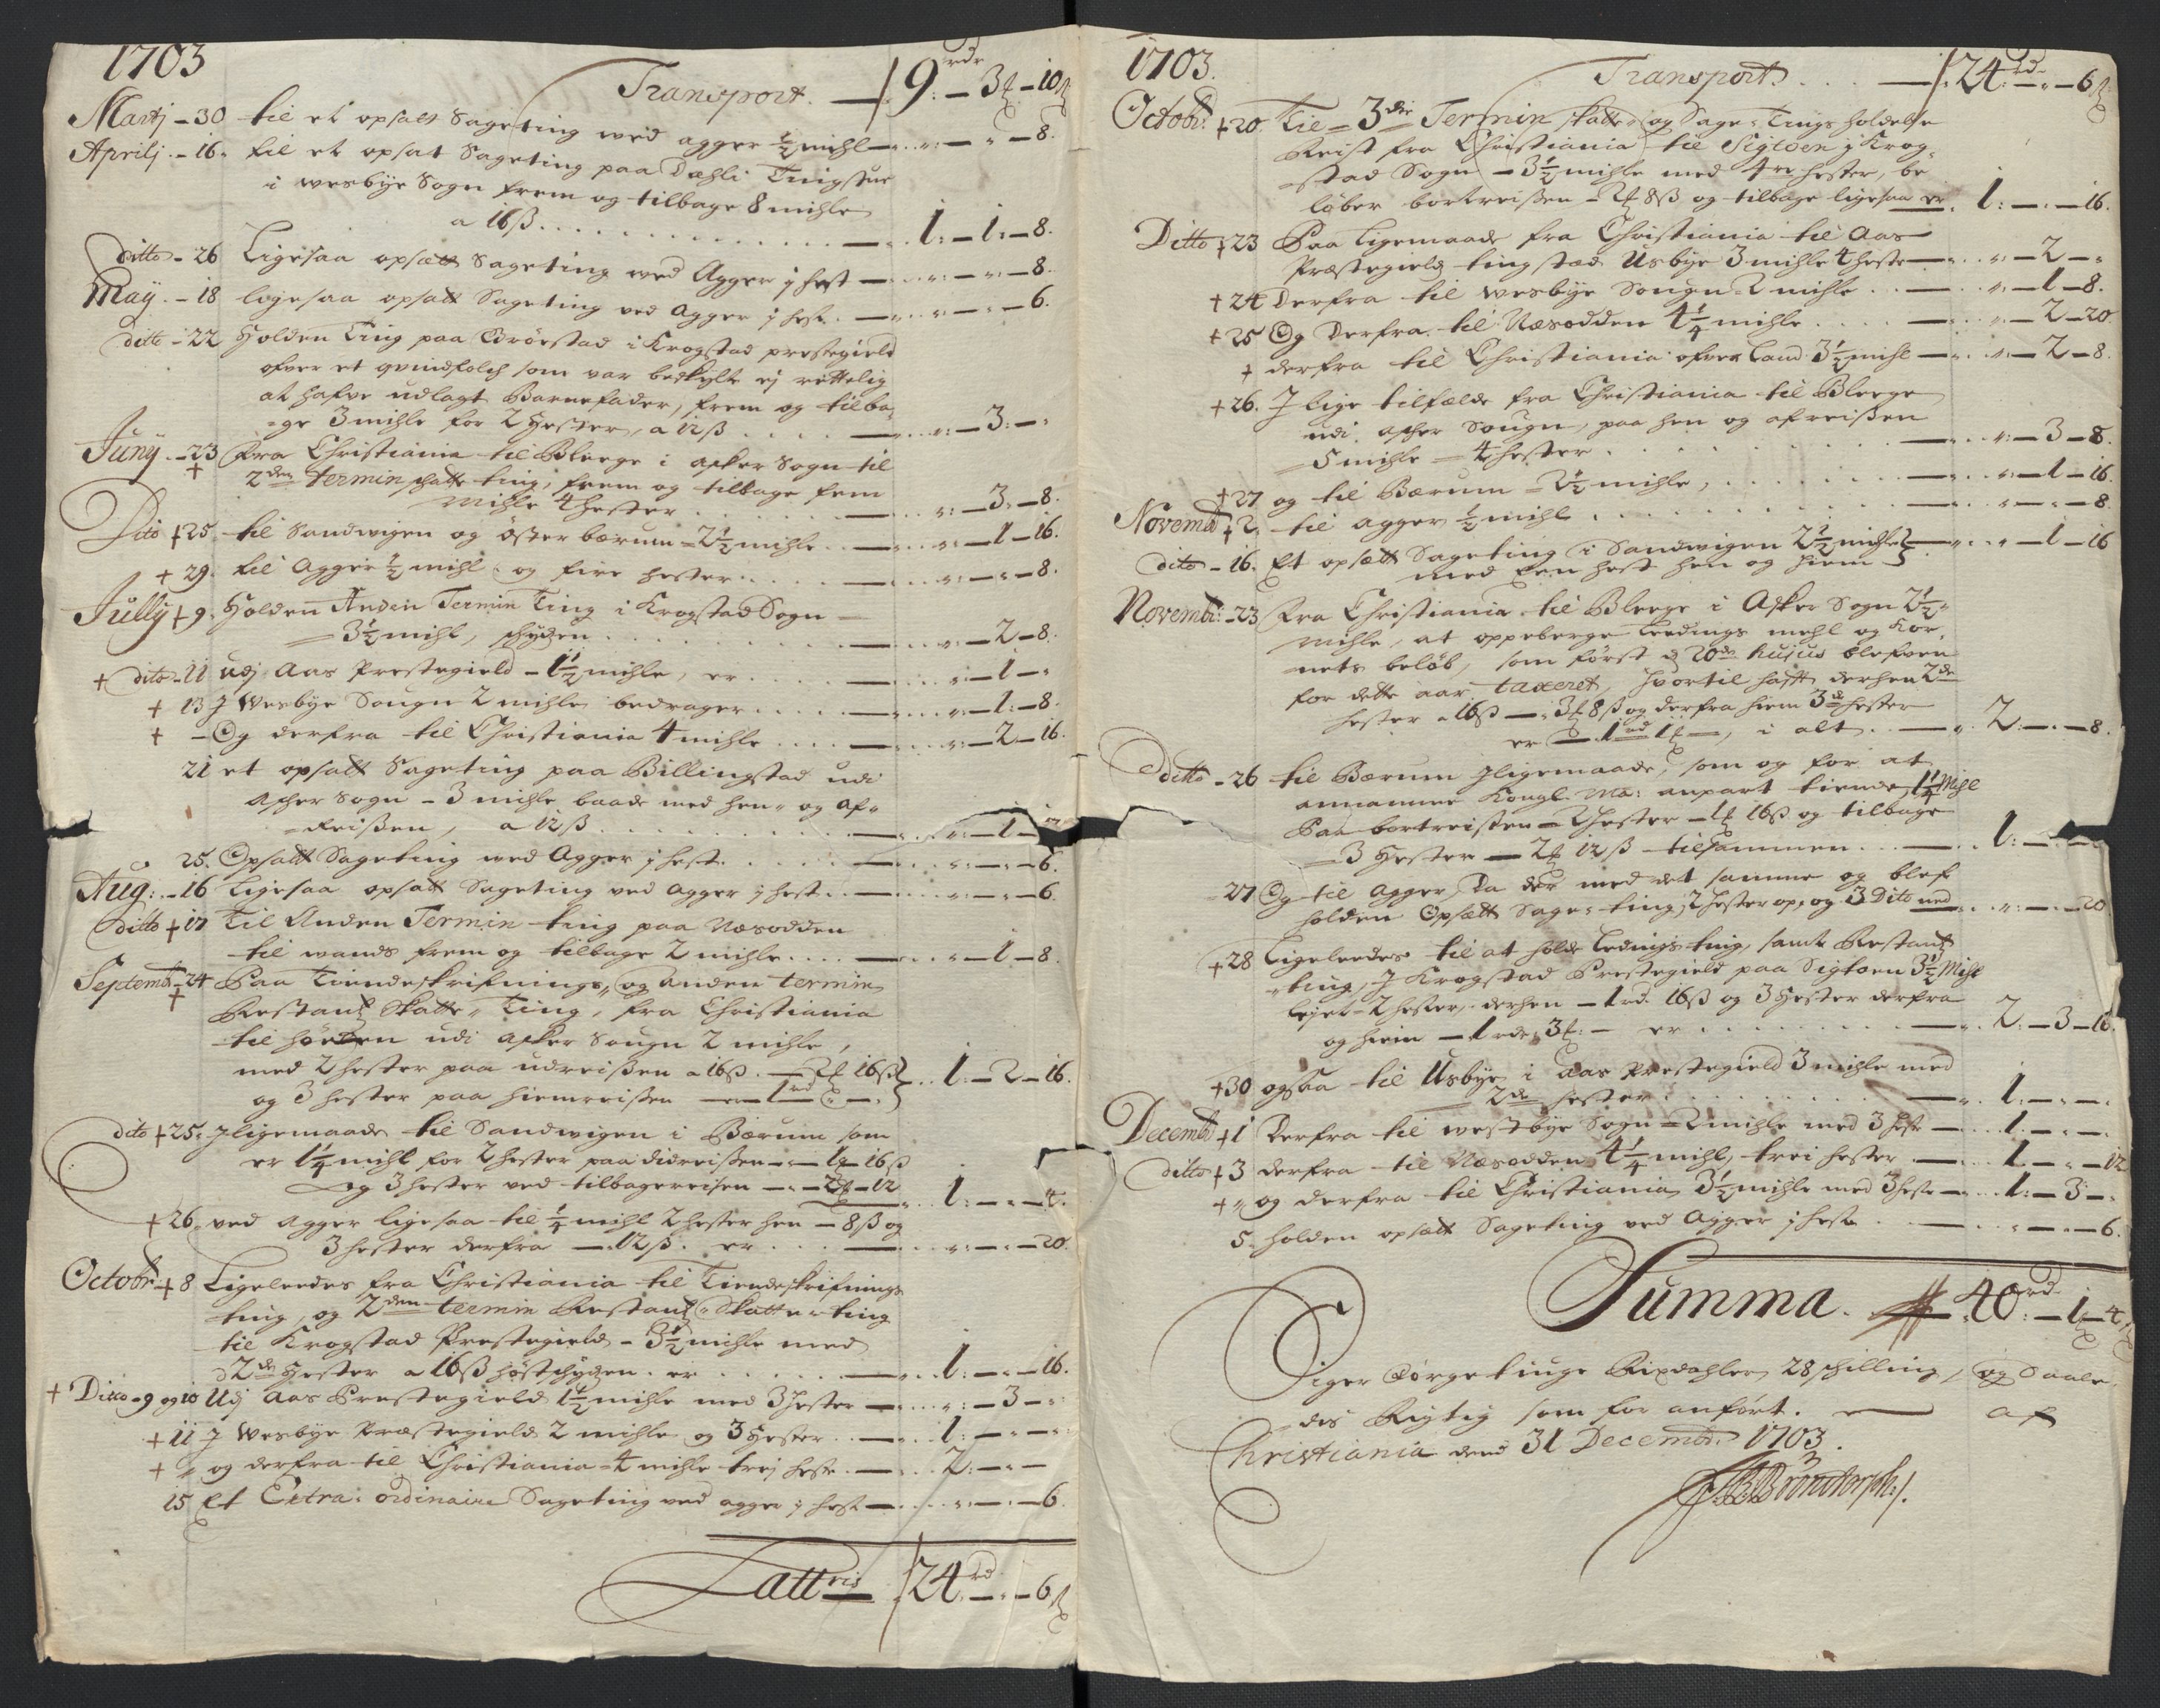 1703
Transport. — 9 rdr — 3 — 10
Martj – 30 til et opsatt Sageting wed agger ½ mihl — „ — „ — 8.
Aprilj – 16. til et opsat Sageting paa Dæhli Tingstue
i wesbÿe Sogn frem og tilbage 8 mihle
a 16 ß. — 1: — 1: — 8.
ditto – 26 Ligesaa opsætt Sageting wed Agger j hest — „ — „ — 8.
Maÿ – 18 ligesaa opsatt Sageting wed Agger j hest. — „ — „ — 6.
ditto – 22 Holden Ting paa i Krogstad prestegield
ofver et qvindfolch som var beskÿlt ej rettelig
at hafve udlagt Barnefader, frem og tilba-
=ge 3 mihle for 2 Hester, a 12 ß — „ — 3: —
Junÿ – 23 Fra Christiania til Bleege i asker Sogn til
+ 2den termin skatte ting, frem og tilbage fem
mihle 4 hester — „ — 3 — 8.
Dito + 25. til Sandwigen og öster bærum – 2½ mihle — „ — 1 — 16.
+ 29. til Agger ½ mihl og fire hester — „ — „ — 8.
Jullÿ + 9. Holden Anden Termin Ting i Krogstad Sogn —
— 3½ mihl, schÿdzen — „ — 2 — 8.
+ dito – 11 udj Aas Prestegield – 1½ mihle, er — „ — 1 —
+ 13 J Wesbÿe Sougn 2 mihle bedrager — „ — 1: — 8.
+ – Og derfra til Christiania 4 mihle — „ — 2 — 16.
21 et opsatt Sageting paa Billingstad udi
Asker Sogn – 3 mihle baade med hen- og af-
=Reißen, a 12 ß — „ — 1 —
25. Opsatt Sageting wed Agger j hest. — „ — „ — 6.
Aug: – 16 Ligesaa opsatt Sageting ved agger j hest. — „ — „ — 6.
ditto + 17 Til Anden Termin ting paa Næsodden
til wands frem og tilbage 2 mihle — „ — 1 — 8.
Septembr – 24 Paa Tiendeskrifnings, og anden termin
+ Restantz Skatte-Ting, fra Christiania
til udi asker Sougn 2 mihle,
med 2 hester paa udreißen a 16 ß. — 2 16 ß
og 3 hester paa hiemreißen — er 1 rd — „ — } 1: — 2 — 16.
dito + 25. Jligemaade til Sandwigen i Bærum som
er 1¼ mihl for 2 hester paa didreißen — 1 — 16 ß
og 3 hester ved tilbagereisen — 2 — 12 — 1: — „ — 4.
+ 26. ved agger ligesaa til ¼ mihl 2 hester hen — 8 ß og
3 hester derfra — 12 ß. er — „ — „ — 20.
Octobr + 8 Ligeleedes fra Christiania til Tiendeskrifnings
ting, og 2den termin Restantz Skatte-ting
til Krogstad Prestegield – 3½ mihle med
2de Hester a 16 ß höstschÿdzen. er — 1: — „ — 16.
+ Ditto – 9 og 10 Udj Aas Prestegield 1½ mihle med 3 hester — „ — 3 —
+ 11 J Wesbÿe Præstegield 2 mihle og 3 Hester — 1: — „ —
+ „ og derfra til Christiania 4 mihle trej heste — 2: — „ —
15 Et Extra-ordinaire Sageting ved agger j hest — „ — „ — 6.
Latt ris 24 rd — „ — 6 ß
1703.
Transport. — 24 rd — „ — 6 ß
Octobr: + 20. Til 3die Termin skatte- og Sage-Tings holdelse
Reist fra Christiania til Sigtoen j Krog-
=stad Sogn – 3½ mihle med 4re hester, be-
löber bortreißen – 2 8 ß og tilbage ligesaa er — 1: — „ — 16.
Ditto + 23 Paa Ligemaade fra Christiania til Aas
Præstegield tingstæd Usbÿe 3 mihle 4 heste — „ — 2 —
+ 24 Derfra til Wesbÿe Sougn – 2 mihle — „ — 1 — 8.
+ 25 Og Derfra til Næsodden 4¼ mihle — „ — 2 — 20
+ derfra til Christiania ofver Land 3½ mihl — „ — 2 — 8.
+ 26. J lige tilfælde fra Christiania til Bleege
udi asker Sougn, paa hen og afreißen
– 5 mihle – 4 hester — „ — 3 — 8.
+ 27 og til Bærum – 2½ mihle, — „ — 1 — 16.
Novembr + 2. til agger ½ mihl — „ — „ — 8.
dito – 16. Et opsatt Sageting i Sandwigen 2½ mihle
med een hest hen og hiem } — „ — 1 — 16
Novembr: – 23 Fra Christiania til Bleege i Asker Sogn 2½
mihle, at oppeberge Leedings mehl og Kor-
nets belöb, som först d 20de hujus blefven
for dette aar taxeret, hvortil hafft derhen 2de
hester a 16 ß — 3 8 ß og derfra hiem 3de hester
er — 1 rd 1 —, i alt — 2 — „ — 8.
Ditto – 26 til Bærum Jligemaade, som og for at
annamme Kongl. Ma: anpart tiende, 1¼ Mihl
Paa bortreißen 2 hester – 1 16 ß og tilbage
— 3 Hester — 2 12 ß – tilsammen — 1: —
27 Og til Agger, Da der med det samme og blef
holden Opsætt Sage-ting, 2 hester op, og 3 Dito ned — „ — „ — 20
+ 28 Ligeleedes til at holde Ledings ting, samt Restantz
ting, J Krogstad Prestegield paa Sigtoen 3½ Mihl
lejet – 2 hester, derhen – 1 rd. 16 ß og 3 Hester derfra
og hiem – 1 rdr 3 – er — 2: — 3 — 16.
+ 30 ogsaa til Usbÿe i Aas Prestegield 3 mihle med
2de hester — 1: — „ —
Decembr + 1 Derfra til westbÿe Sogn – 2 mihle med 3 heste — 1: — „ —
ditto + 3 derfra til Næsodden 4¼ mihl, trei hester — 1 — „ — 12
+ „ og derfra til Christiania 3½ mihle med 3 heste — 1: — 3 —
5. holden opsatt Sageting ved Agger j hest — „ — „ — 6.
Summa. 40 rd — 1 — 4
Siger Förgetiuge Rixdahler 28 schilling, og Saale-
des Rigtig som for anfört. — af
Christiania dend 31 Decembr: 1703.